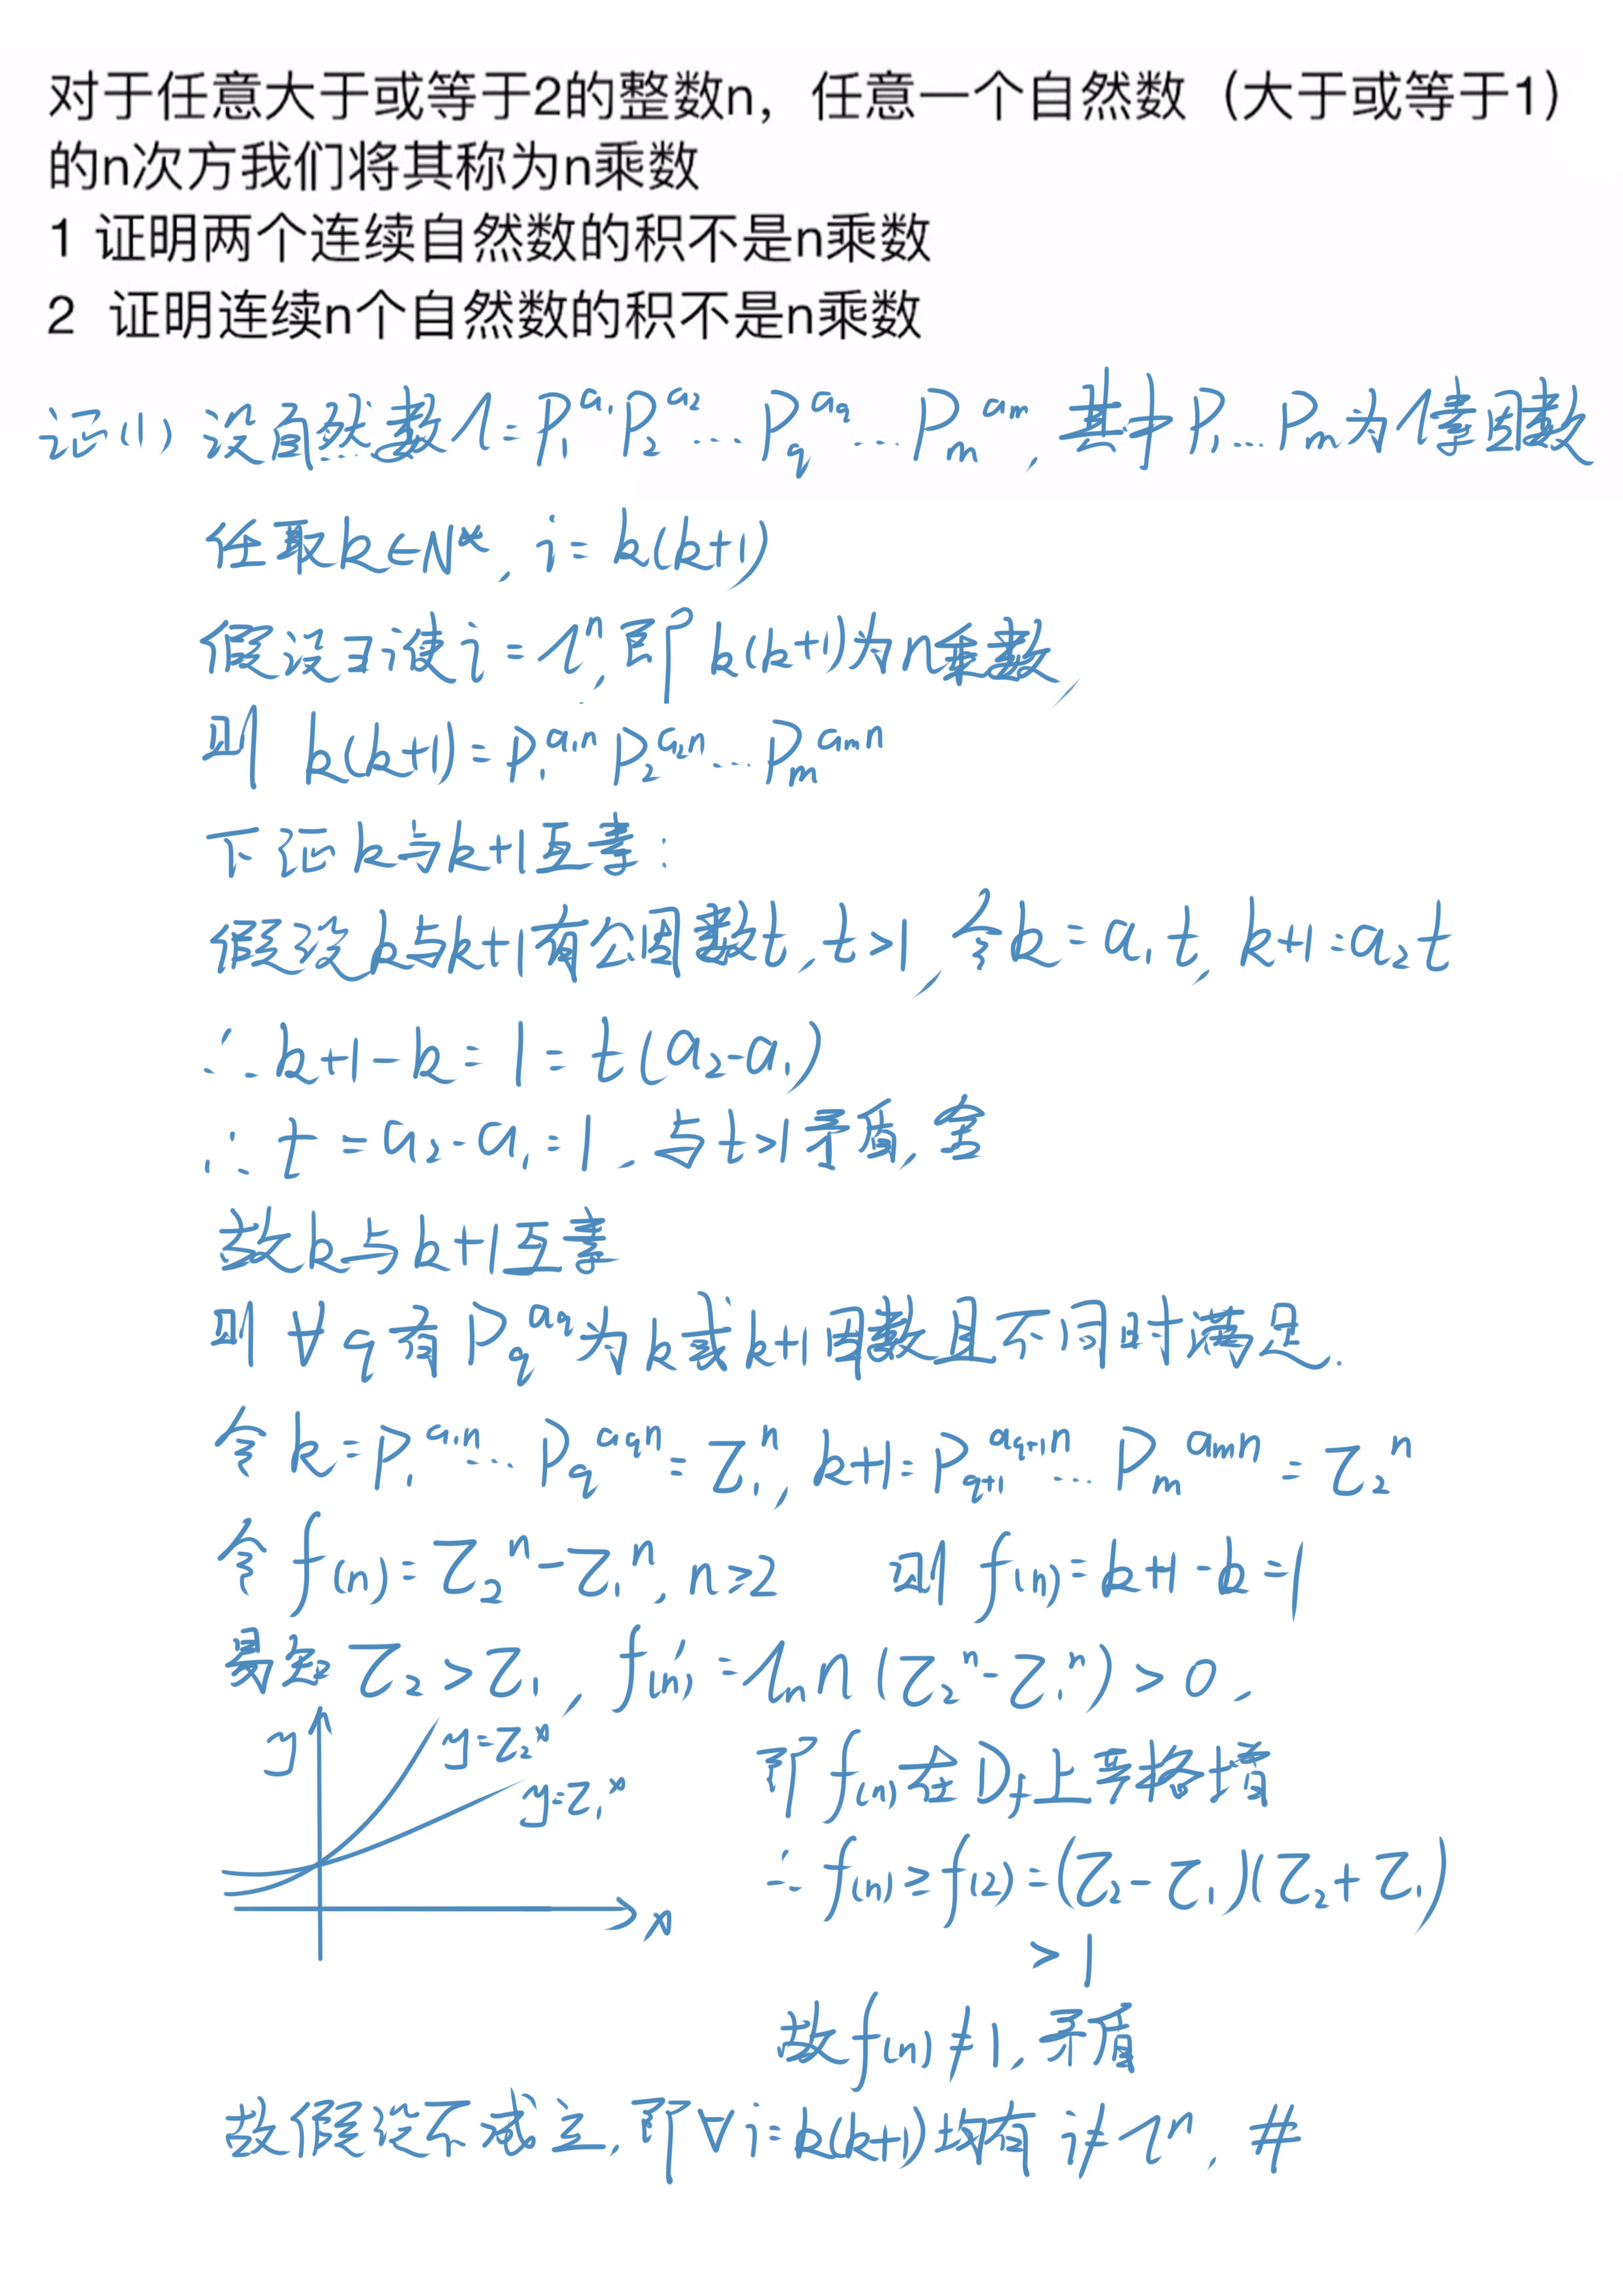 对于任意大于或等于2的整数n，任意一个自然数（大于或等于1）
的n次方我们将其称为n乘数
1 证明两个连续自然数的积不是n乘数
2 证明连续n个自然数的积不是n乘数
证(1) 设自然数l=P₁^a₁P₂^a₂…P_q^a_q…P_m^a_m, 其中P₁…P_m为l素因数
任取k∈N*, i=k(k+1)
假设可使i=lⁿ, 即k(k+1)为n乘数,
则 k(k+1)=P₁^(a₁n)P₂^(a₂n)…P_m^(a_m n)
下证k与k+1互素:
假设k与k+1有公因数t, t>1, 令k=a₁t, k+1=a₂t
∴k+1-k=1=t(a₂-a₁)
∴t=a₂-a₁=1, 与t>1矛盾, 舍
故k与k+1互素
则∀q有P_q^a_q为k或k+1因数且不同时满足.
令k=P₁^(a₁n)…P_q^(a_q n)=Z₁ⁿ, k+1=P_(q+1)^(a_(q+1)n)…P_m^(a_m n)=Z₂ⁿ
令f(n)=Z₂ⁿ-Z₁ⁿ, n≥2 则f(n)=k+1-k=1
易知Z₂>Z₁, f'(n)=ln n(Z₂ⁿ-Z₁ⁿ)>0,
y y=Z₂ˣ
y=Z₁ˣ
x
即f(n)在D_f上严格增
∴f(n)≥f(2)=(Z₂-Z₁)(Z₂+Z₁)
>1
故f(n)≠1, 矛盾
故假设不成立, 即∀i=k(k+1)均有i≠lⁿ. #